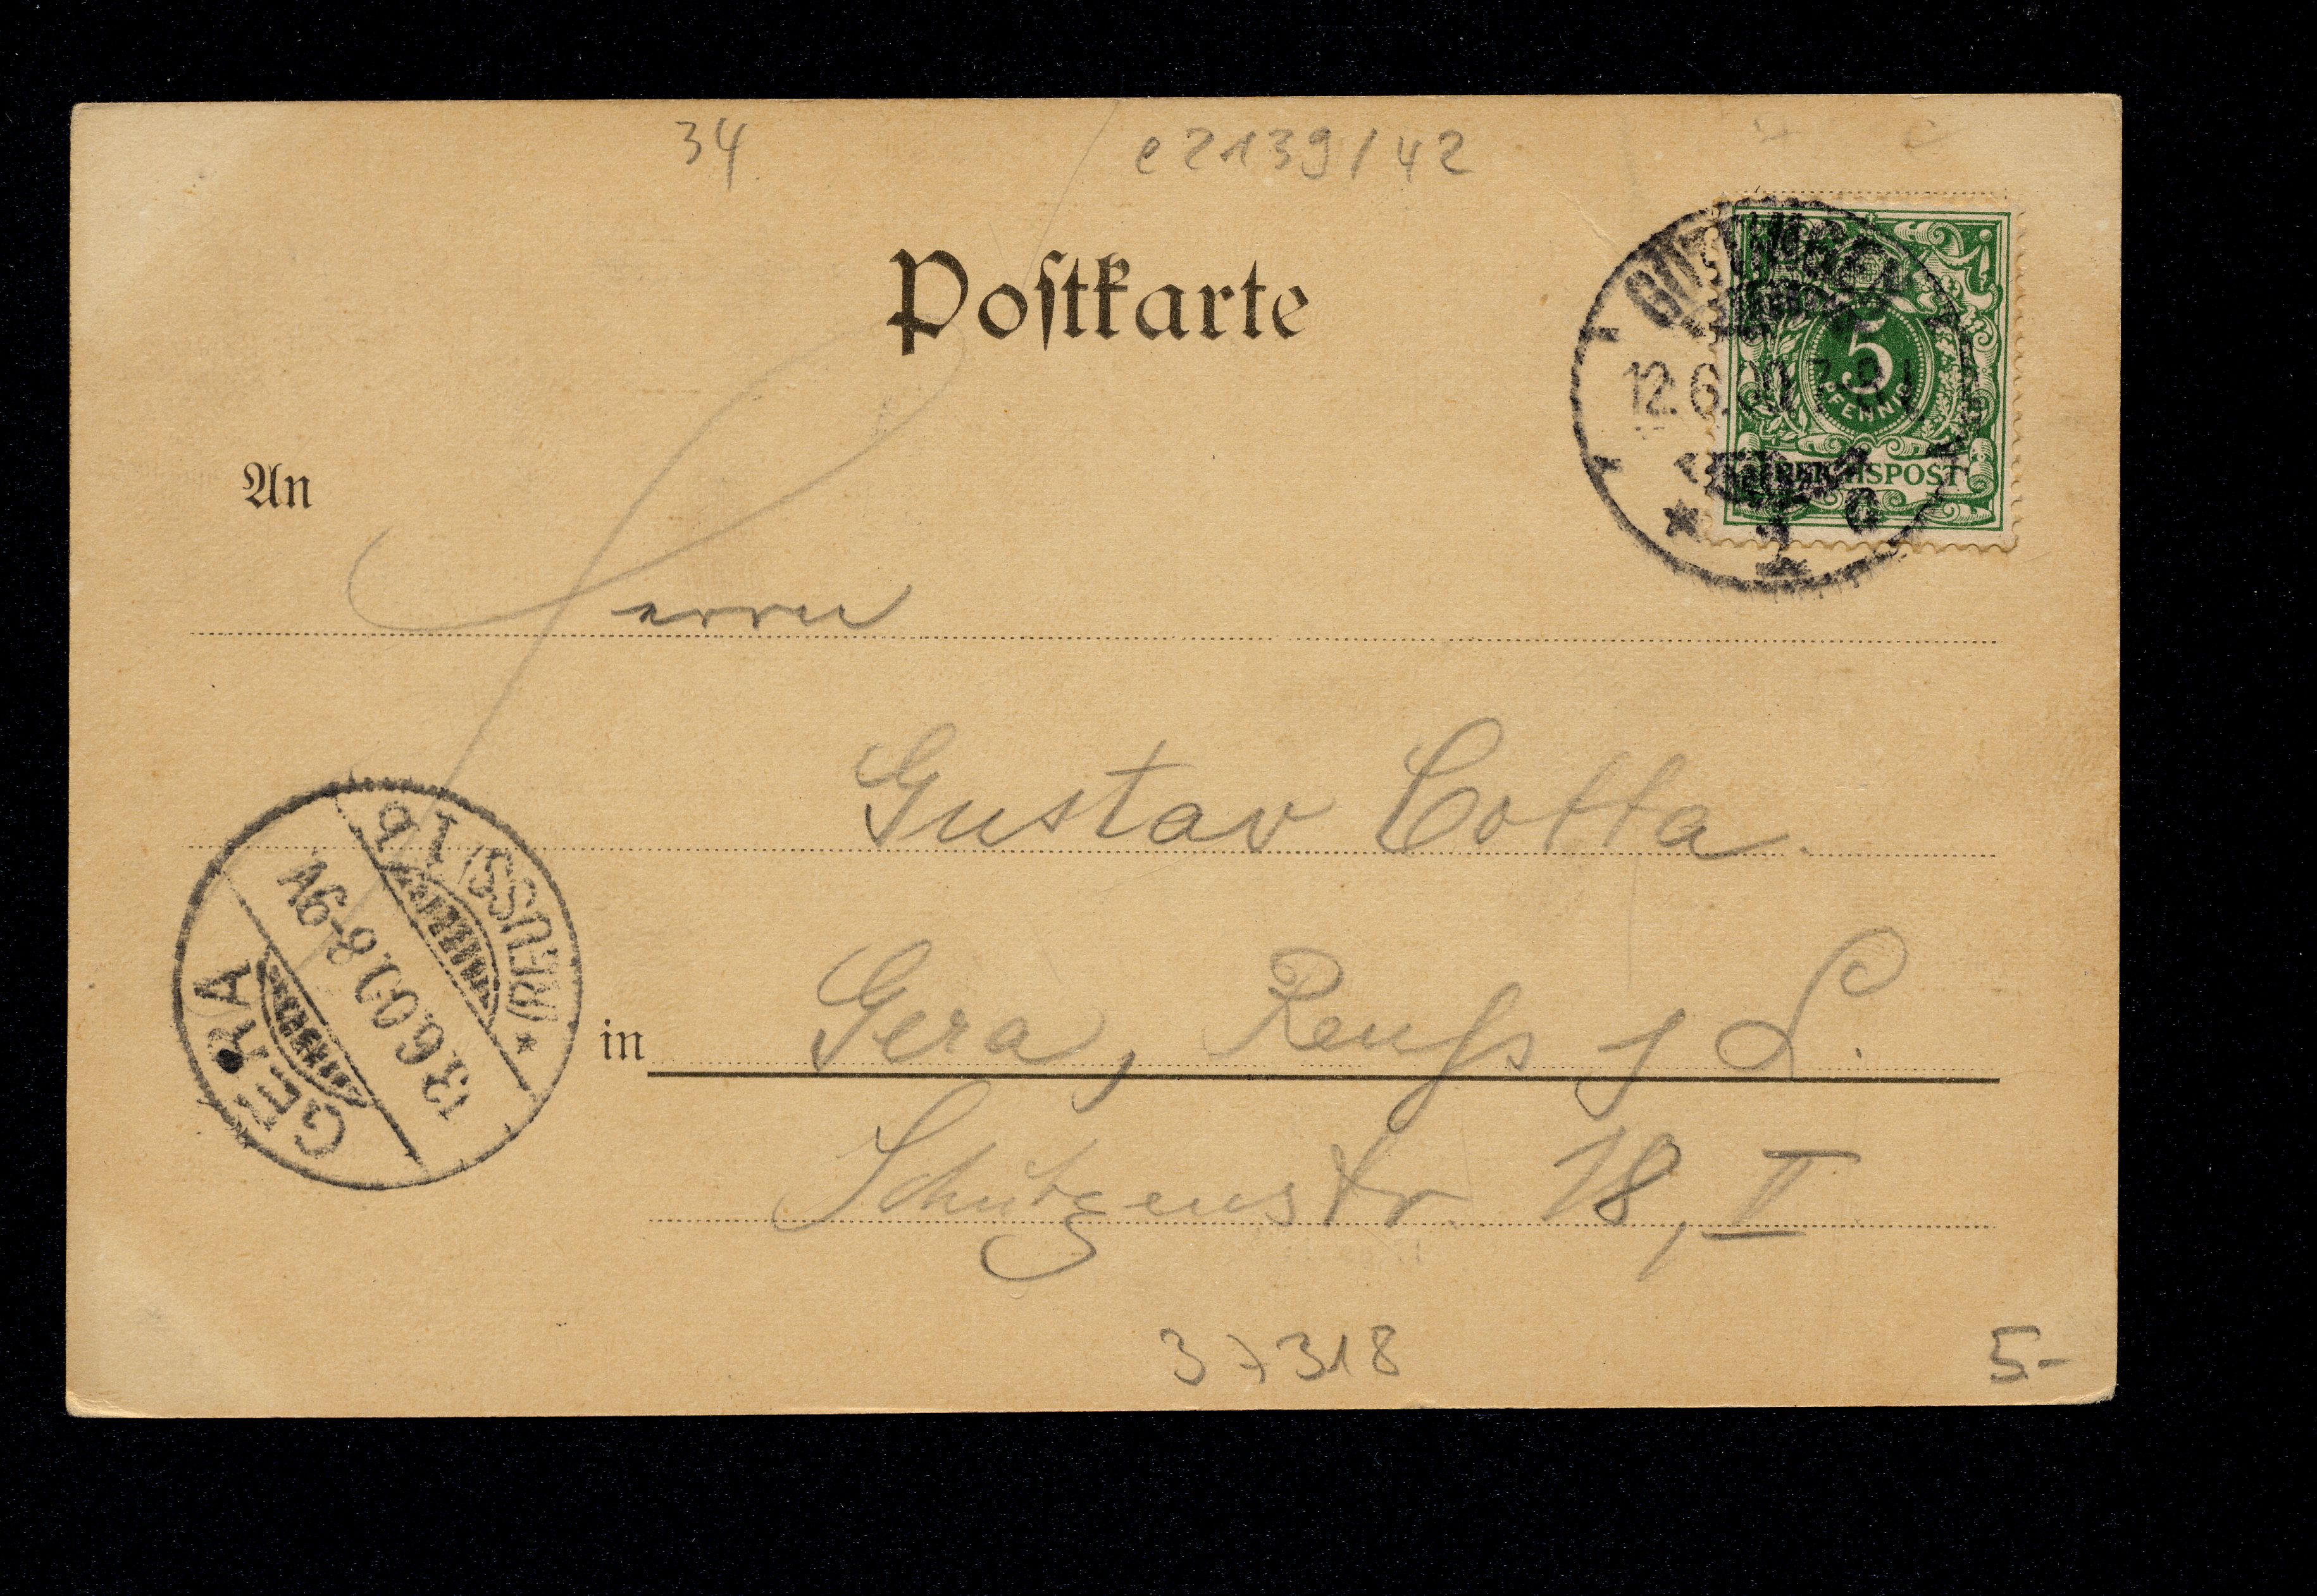 34
e 2139/42
Postkarte
GÖTTINGEN
12.6.00.
* 1 c
5
PFENNIG
REICHSPOST
An
Herrn
Gustav Cotta.
in Gera, Reuss j L.
Schützenstr. 18, II
GERA
13.6.00. 8-9V.
(REUSS) 1 b
37318
5-